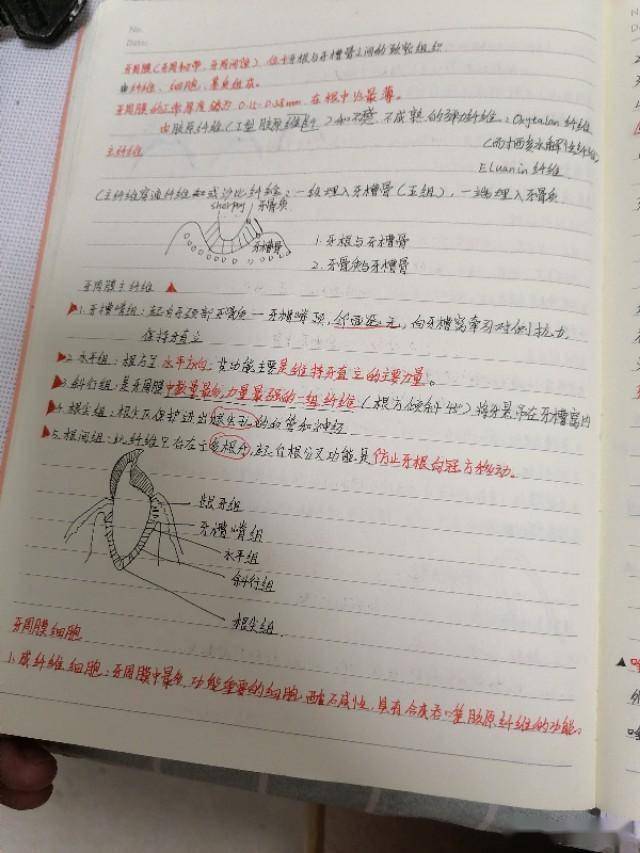 No.
Date:
牙周膜(牙周韧带、牙周间隙) 位于牙根与牙槽骨之间的致密组织
由纤维、细胞、基质组成。
牙周膜的正常厚度为 0.15-0.38mm. 在根中1/3最薄。
由胶原纤维(I型胶原纤维 不成熟的弹力纤维: Oxytalan纤维
主纤维
Eluanin纤维
(主纤维穿通纤维 沙比纤维:一级埋入牙槽骨, 一端埋入牙骨质
sherpey 牙骨质
牙槽骨
1. 牙根与牙槽骨
2. 牙骨质与牙槽骨
牙周膜主纤维 ▲
1. 牙槽嵴组:起自牙颈部牙骨质—牙槽嵴顶, 邻面无, 向牙槽窝牵引对侧拉力
保持牙直立
2. 水平组:根与呈水平方向, 其功能主要是维持牙直立的主要力量。
3. 斜行组:是牙周膜中数量最多,力量最强的一组纤维(根方倾斜45°)将牙悬吊在牙槽窝内
4. 根尖组:根尖区保护进出根尖孔的血管和神经
5. 根间组:此纤维只存在于多根牙, 起自根分叉功能是防止牙根向冠方移动。
牙槽嵴组
水平组
斜行组
根尖组
牙周膜细胞
1. 成纤维细胞:牙周膜中最多, 功能重要的细胞. 具有合成吞噬胶原纤维的功能。